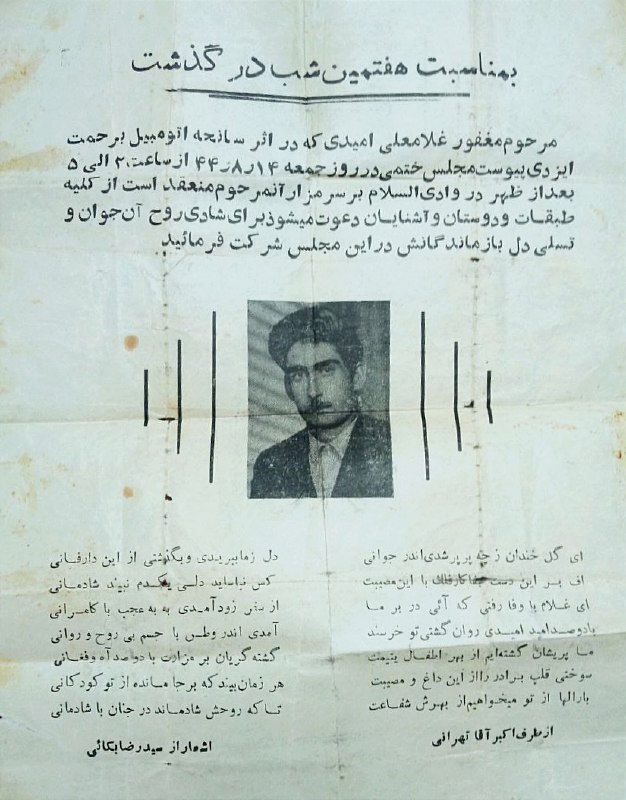 بمناسبت هفتمین شب در گذشت
مرحوم مغفور غلامعلی امیدی که در اثر سانحه اتومبیل برحمت
ایزدی پیوست مجلس ختمی در روز جمعه ۴۴٫۸٫۱۴ از ساعت ۲ الی ۵
بعد از ظهر در وادی السلام بر سر مزار آنمرحوم منعقد است از کلیه
طبقات و دوستان و آشنایان دعوت میشود برای شادی روح آن جوان و
تسلی دل بازماندگانش در این مجلس شرکت فرمائید
ای گل خندان ز چه پرپر شدی اندر جوانی
دل زما ببریدی و بگذشتی از این دارفانی
اف بر این دست جفاکار فلک با این مصیبت
کس نباید دلی یکدم نبیند شادمانی
ای غلام با وفا رفتی که آئی در بر ما
از سفر زود آمدی به به عجب با کامرانی
با دوصد امید امیدی روان گشتی تو خرسند
آمدی اندر وطن با جسم بی روح و روانی
ما پریشان گشته‌ایم از بهر اطفال یتیمت
گشته گریان بر مزارت با دوصد آه و فغانی
سوختی قلب برادر را از این داغ و مصیبت
هر زمان بیند که برجا مانده از تو کودکانی
بارالها از تو میخواهیم از بهرش شفاعت
تا که روحش شادماند در جنان با شادمانی
از طرف اکبر آقا تهرانی
اشعار از سید رضا بکائی